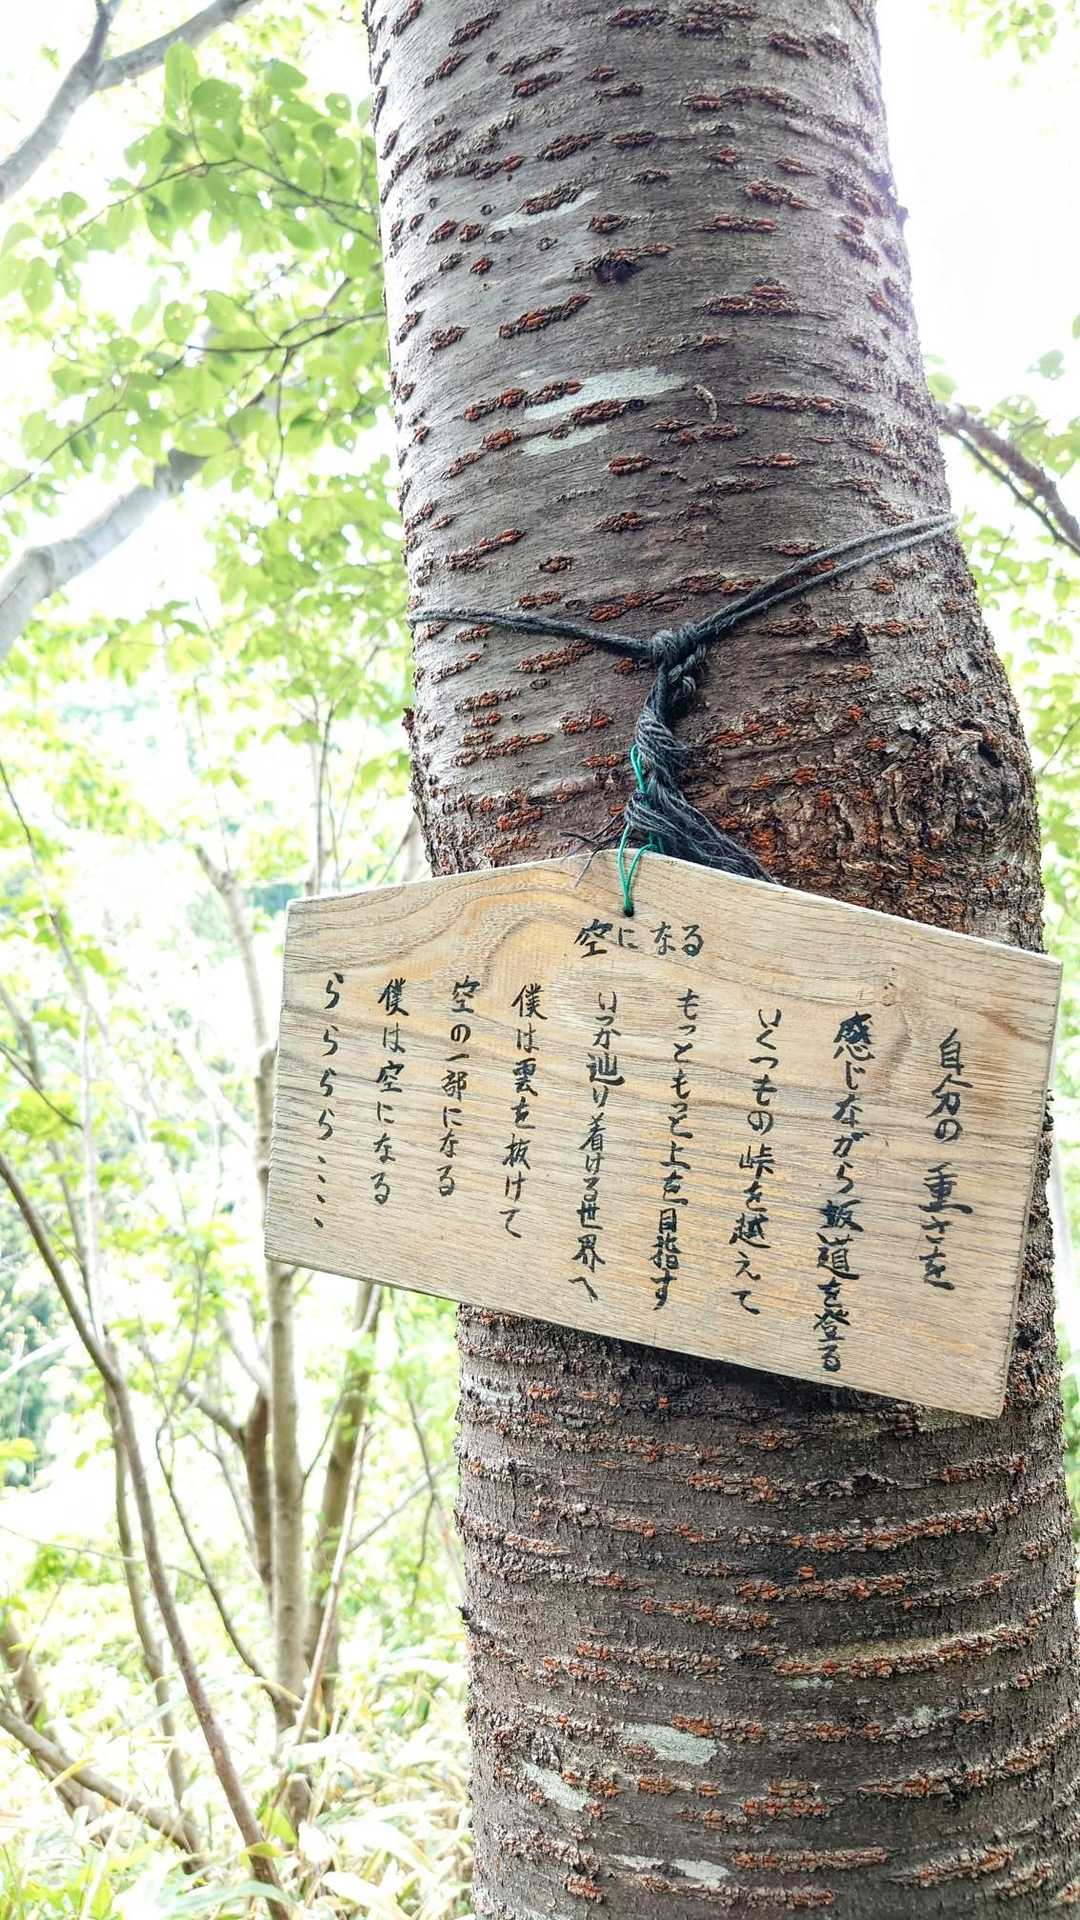 空になる
自分の重さを
感じながら坂道を登る
いくつもの峠を越えて
もっともっと上を目指す
いつか辿り着ける世界へ
僕は雲を抜けて
空の一部になる
僕は空になる
らららら、、、